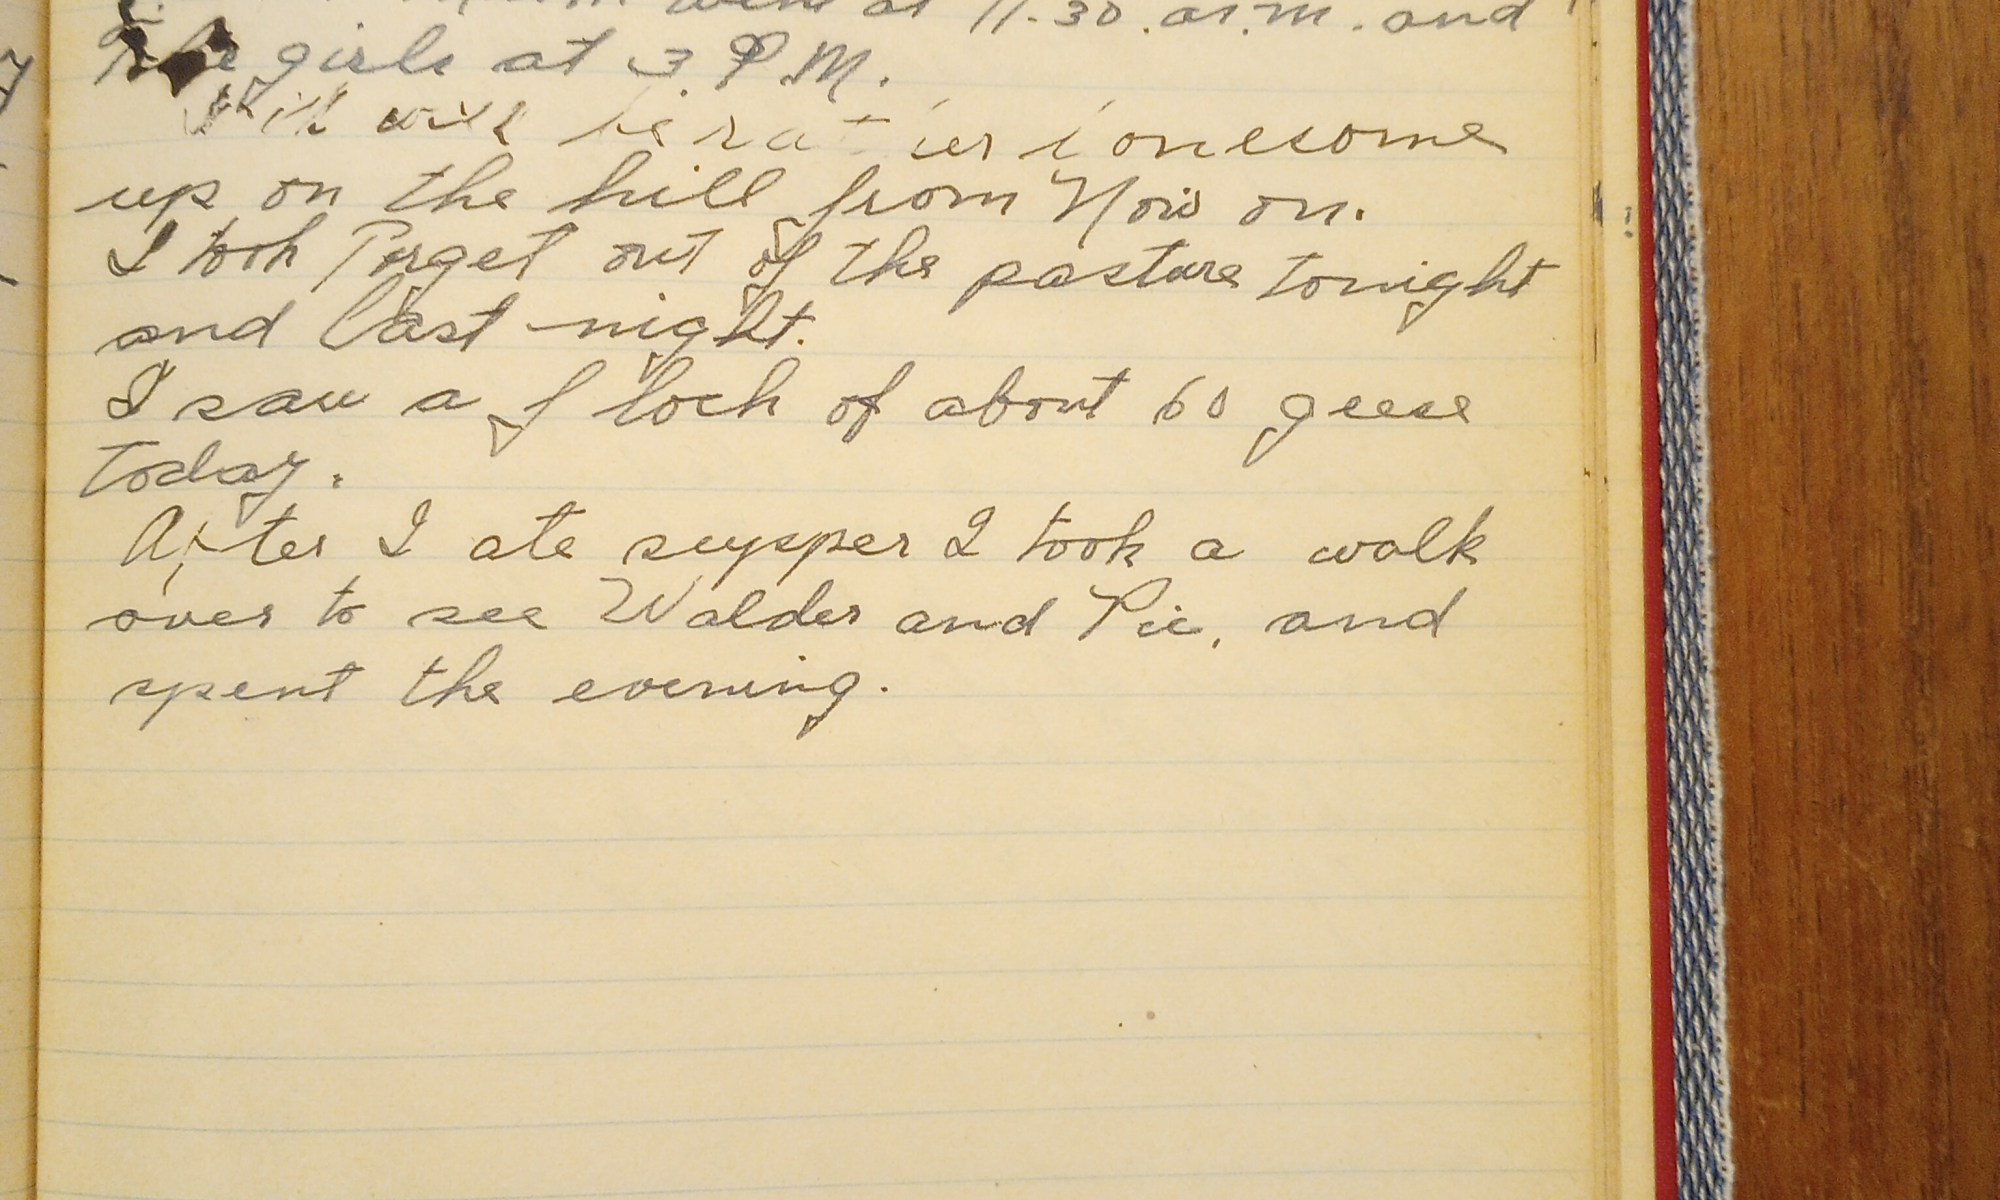 went at 11.30. a.m. and
The girls at 3. P.M.
It will be rather lonesome
up on the hill from Now on.
I took Porget out of the pasture tonight
and last night.
I saw a flock of about 60 geese
today.
After I ate supper I took a walk
over to see Walder and Pie, and
spent the evening.